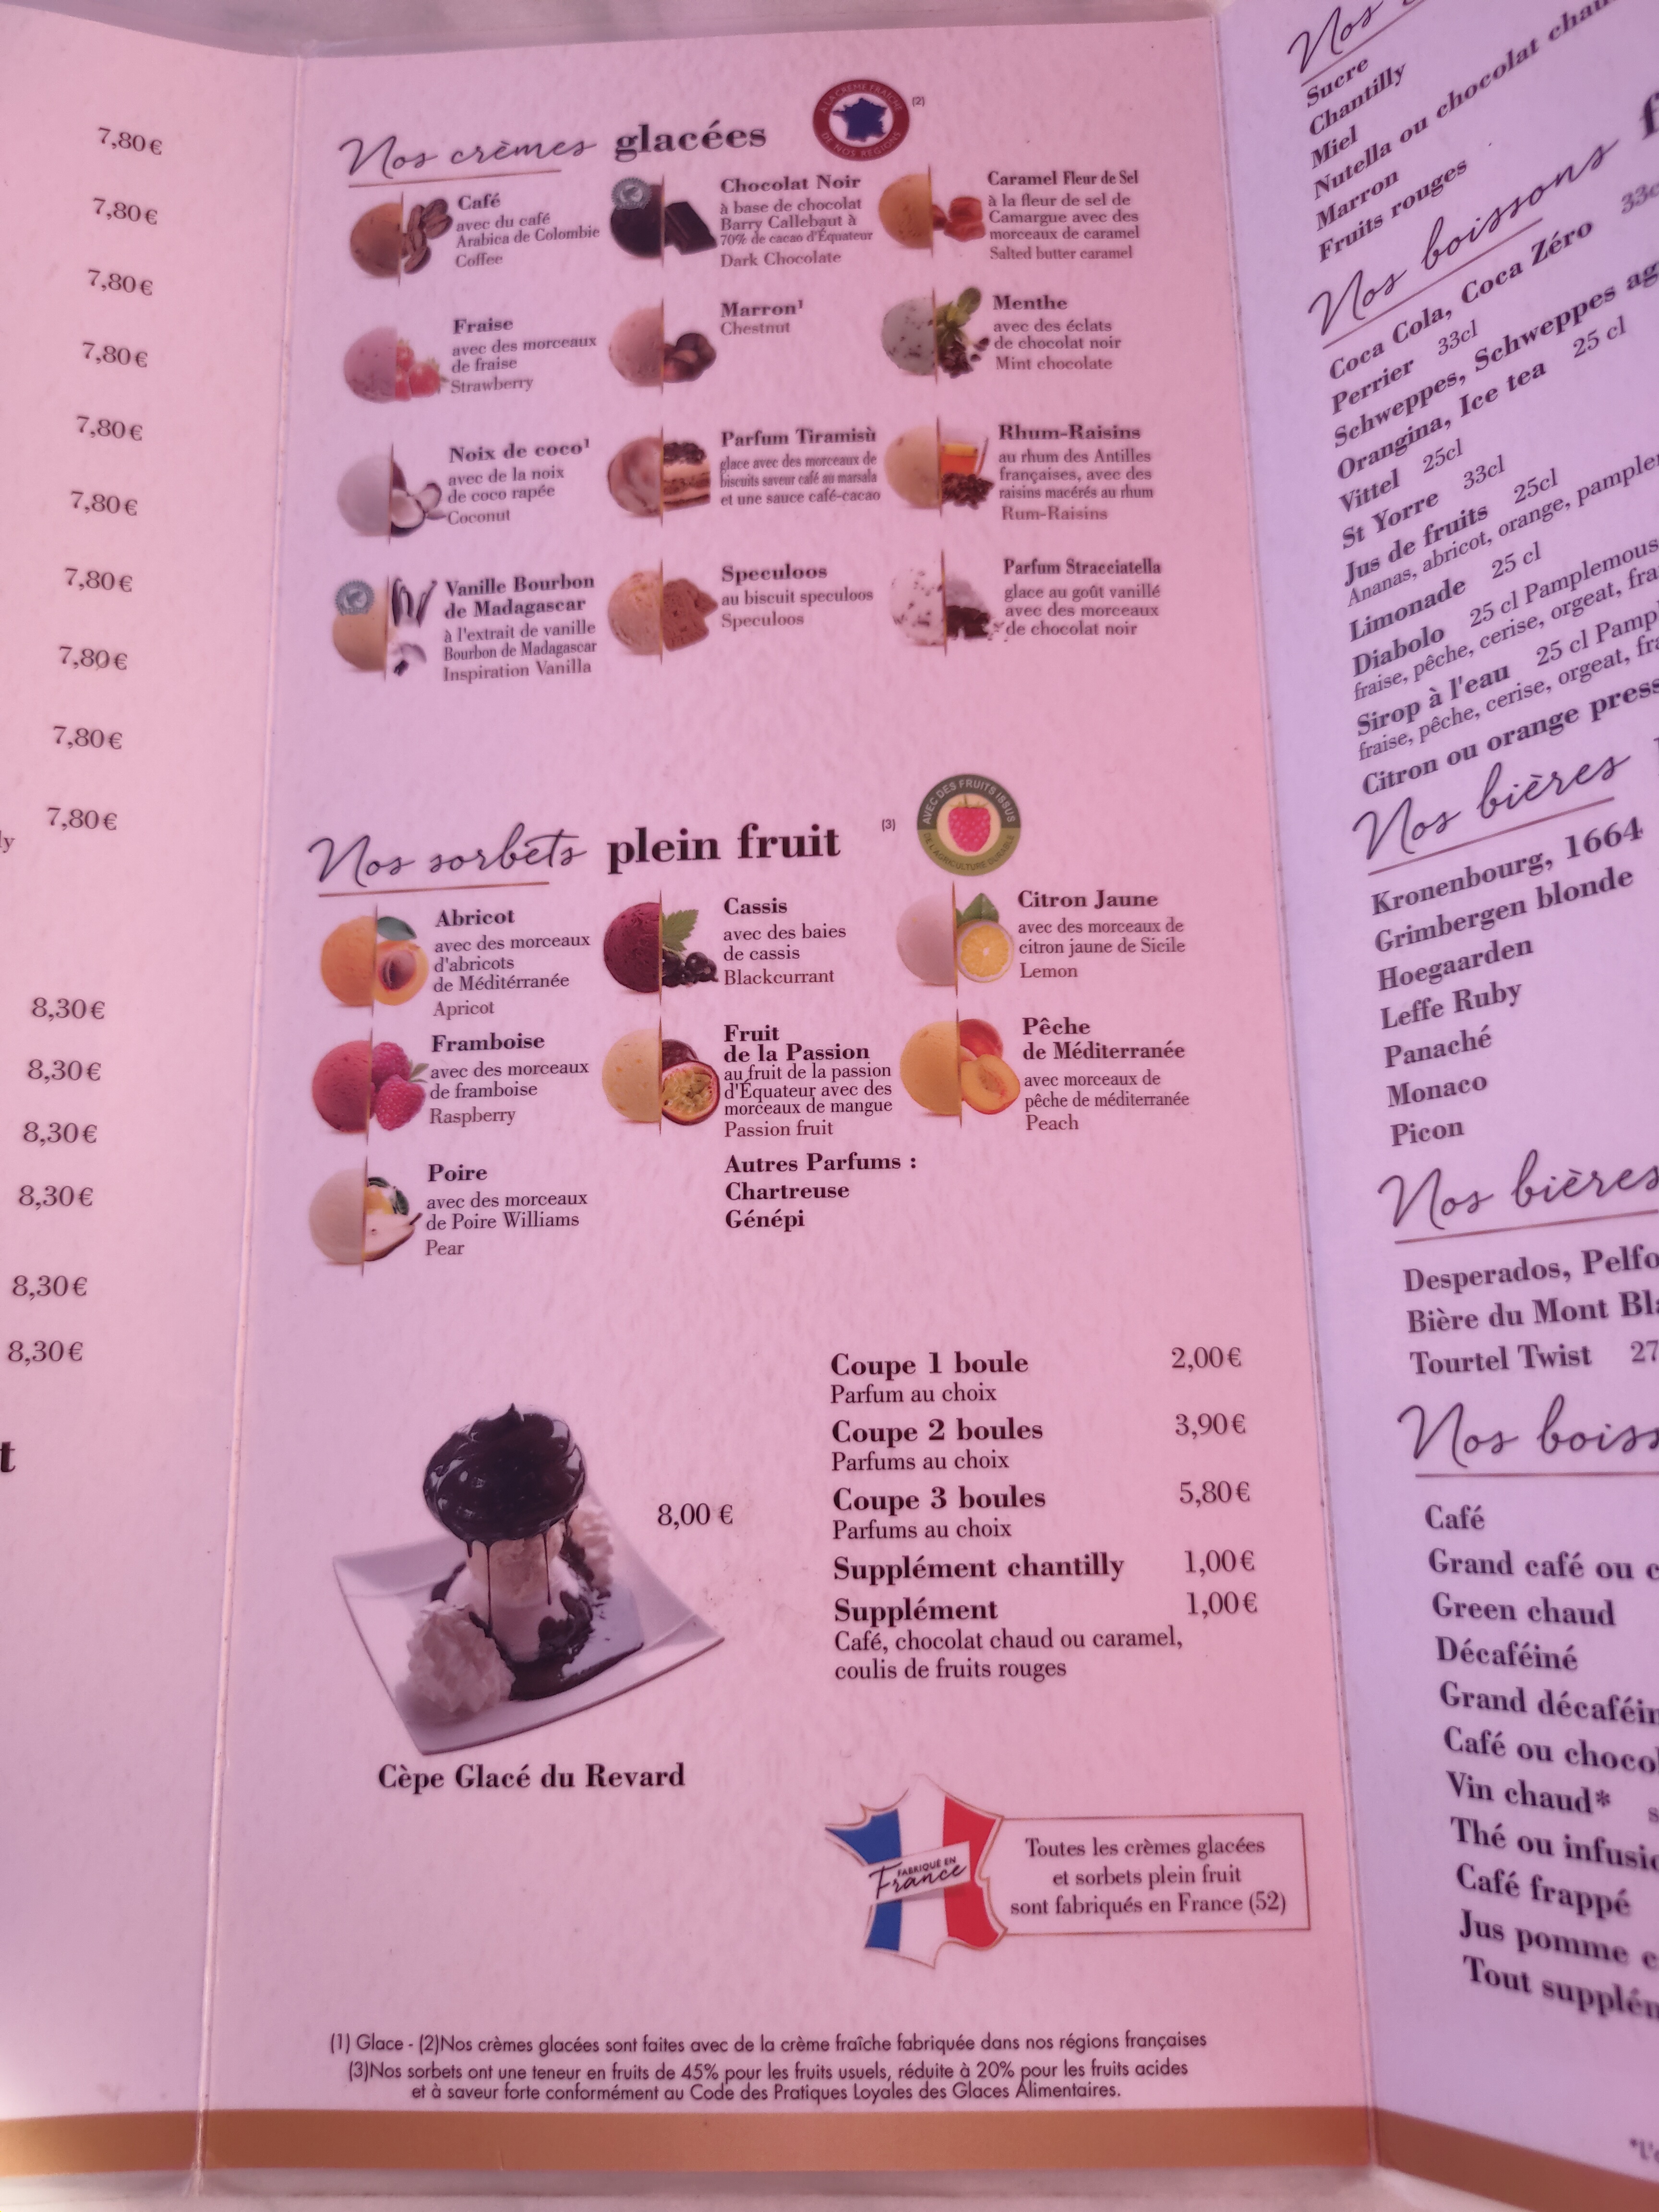 7,80€
7,80€
7,80€
7,80€
7,80€
7,80€
7,80€
7,80€
7,80€
7,80€
8,30€
8,30€
8,30€
8,30€
8,30€
8,30€
t
Nos crèmes glacées
A LA CRÈME FRAÎCHE
DE NOS RÉGIONS
(2)
Café
avec du café
Arabica de Colombie
Coffee
Chocolat Noir
à base de chocolat
Barry Callebaut à
70% de cacao d'Équateur
Dark Chocolate
Caramel Fleur de Sel
à la fleur de sel de
Camargue avec des
morceaux de caramel
Salted butter caramel
Fraise
avec des morceaux
de fraise
Strawberry
Marron¹
Chestnut
Menthe
avec des éclats
de chocolat noir
Mint chocolate
Noix de coco¹
avec de la noix
de coco rapée
Coconut
Parfum Tiramisù
glace avec des morceaux de
biscuits saveur café au marsala
et une sauce café-cacao
Rhum-Raisins
au rhum des Antilles
françaises, avec des
raisins macérés au rhum
Rum-Raisins
Vanille Bourbon
de Madagascar
à l'extrait de vanille
Bourbon de Madagascar
Inspiration Vanilla
Speculoos
au biscuit speculoos
Speculoos
Parfum Stracciatella
glace au goût vanillé
avec des morceaux
de chocolat noir
Nos sorbets plein fruit
(3)
AVEC DES FRUITS ISSUS
DE L'AGRICULTURE DURABLE
Abricot
avec des morceaux
d'abricots
de Méditérranée
Apricot
Cassis
avec des baies
de cassis
Blackcurrant
Citron Jaune
avec des morceaux de
citron jaune de Sicile
Lemon
Framboise
avec des morceaux
de framboise
Raspberry
Fruit
de la Passion
au fruit de la passion
d'Équateur avec des
morceaux de mangue
Passion fruit
Pêche
de Méditerranée
avec morceaux de
pêche de méditerranée
Peach
Poire
avec des morceaux
de Poire Williams
Pear
Autres Parfums :
Chartreuse
Génépi
Coupe 1 boule 2,00€
Parfum au choix
Coupe 2 boules 3,90€
Parfums au choix
Coupe 3 boules 5,80€
Parfums au choix
Supplément chantilly 1,00€
Supplément 1,00€
Café, chocolat chaud ou caramel,
coulis de fruits rouges
8,00 €
Cèpe Glacé du Revard
FABRIQUÉ EN
France
Toutes les crèmes glacées
et sorbets plein fruit
sont fabriqués en France (52)
(1) Glace - (2)Nos crèmes glacées sont faites avec de la crème fraîche fabriquée dans nos régions françaises
(3)Nos sorbets ont une teneur en fruits de 45% pour les fruits usuels, réduite à 20% pour les fruits acides
et à saveur forte conformément au Code des Pratiques Loyales des Glaces Alimentaires.
Nos
Sucre
Chantilly
Miel
Nutella ou chocolat
Marron
Fruits rouges
Nos boissons
Coca Cola, Coca Zéro
Perrier 33cl
Schweppes, Schweppes
Orangina, Ice tea 25 cl
Vittel 25cl
St Yorre 33cl
Jus de fruits 25cl
Ananas, abricot, orange,
Limonade 25 cl
Diabolo 25 cl
fraise, pêche, cerise, orgeat,
Sirop à l'eau 25 cl
fraise, pêche, cerise, orgeat,
Citron ou orange
Nos bières
Kronenbourg, 1664
Grimbergen blonde
Hoegaarden
Leffe Ruby
Panaché
Monaco
Picon
Nos bières
Desperados,
Bière du Mont
Tourtel Twist 27
Nos
Café
Grand café ou
Green chaud
Décaféiné
Grand
Café ou
Vin chaud*
Thé ou
Café frappé
Jus pomme
Tout